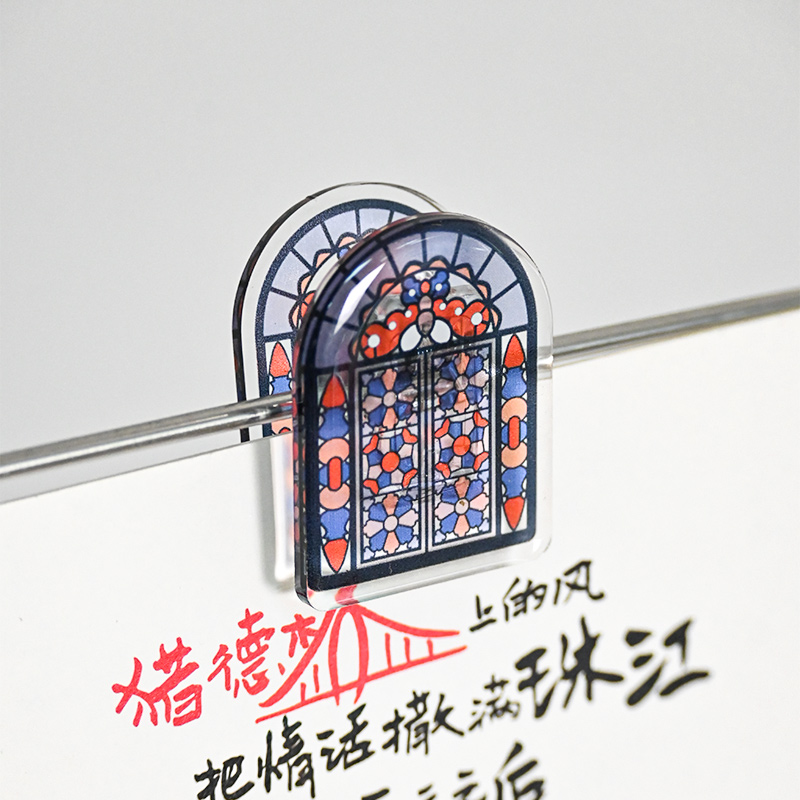 猎德桥上的风
把情话撒满珠江
后